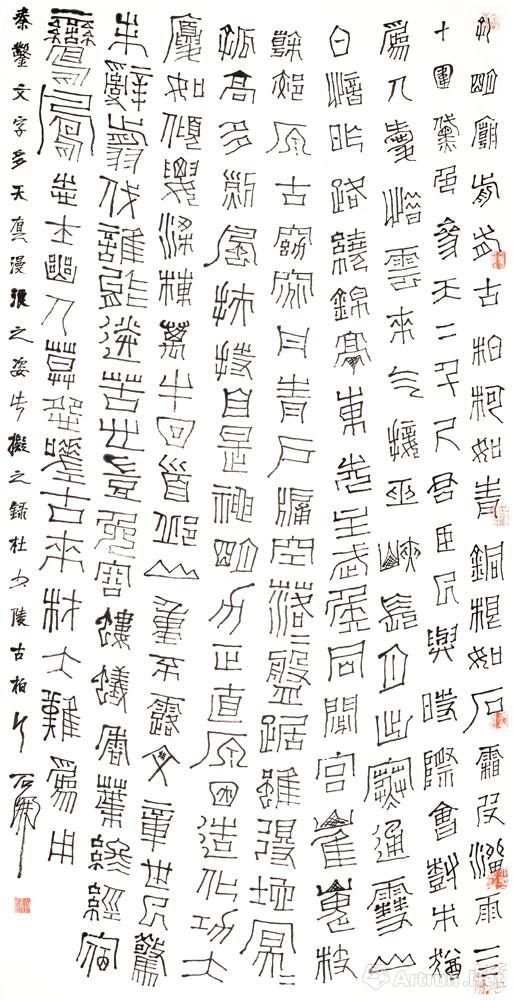 孔明廟前有古柏柯如青銅根如石霜皮溜雨四
十圍黛色參天二千尺君臣已與時際會樹木猶
爲人愛惜雲來气接巫峽長月出寒通雪山
白憶昨路繞錦亭東先主武侯同閟宮崔嵬枝
榦郊原古窈窕丹青戶牖空落〻盤踞雖得地冥〻
孤高多烈風扶持自是神明力正直原因造化功大
廈如傾要梁棟萬牛回首丘山重不露文章世已驚
未辭翦伐誰能送苦心豈免容螻蟻香葉終經宿
鸞鳳志士幽人莫怨嗟古來材大難爲用
秦鑿文字多天真漫張之姿此擬之錄杜少陵古柏行 石開
Artron.Net